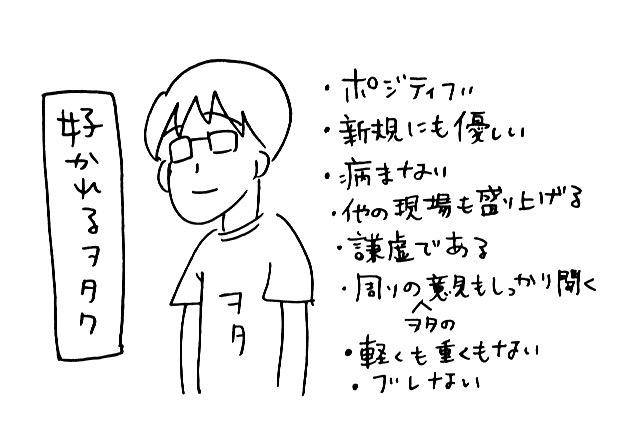 好かれるヲタク
ヲタ
・ポジティブ
・新規にも優しい
・病まない
・他の現場も盛り上げる
・謙虚である
・周りの意見もしっかり聞く
ヲタの
・軽くも重くもない
・ブレない